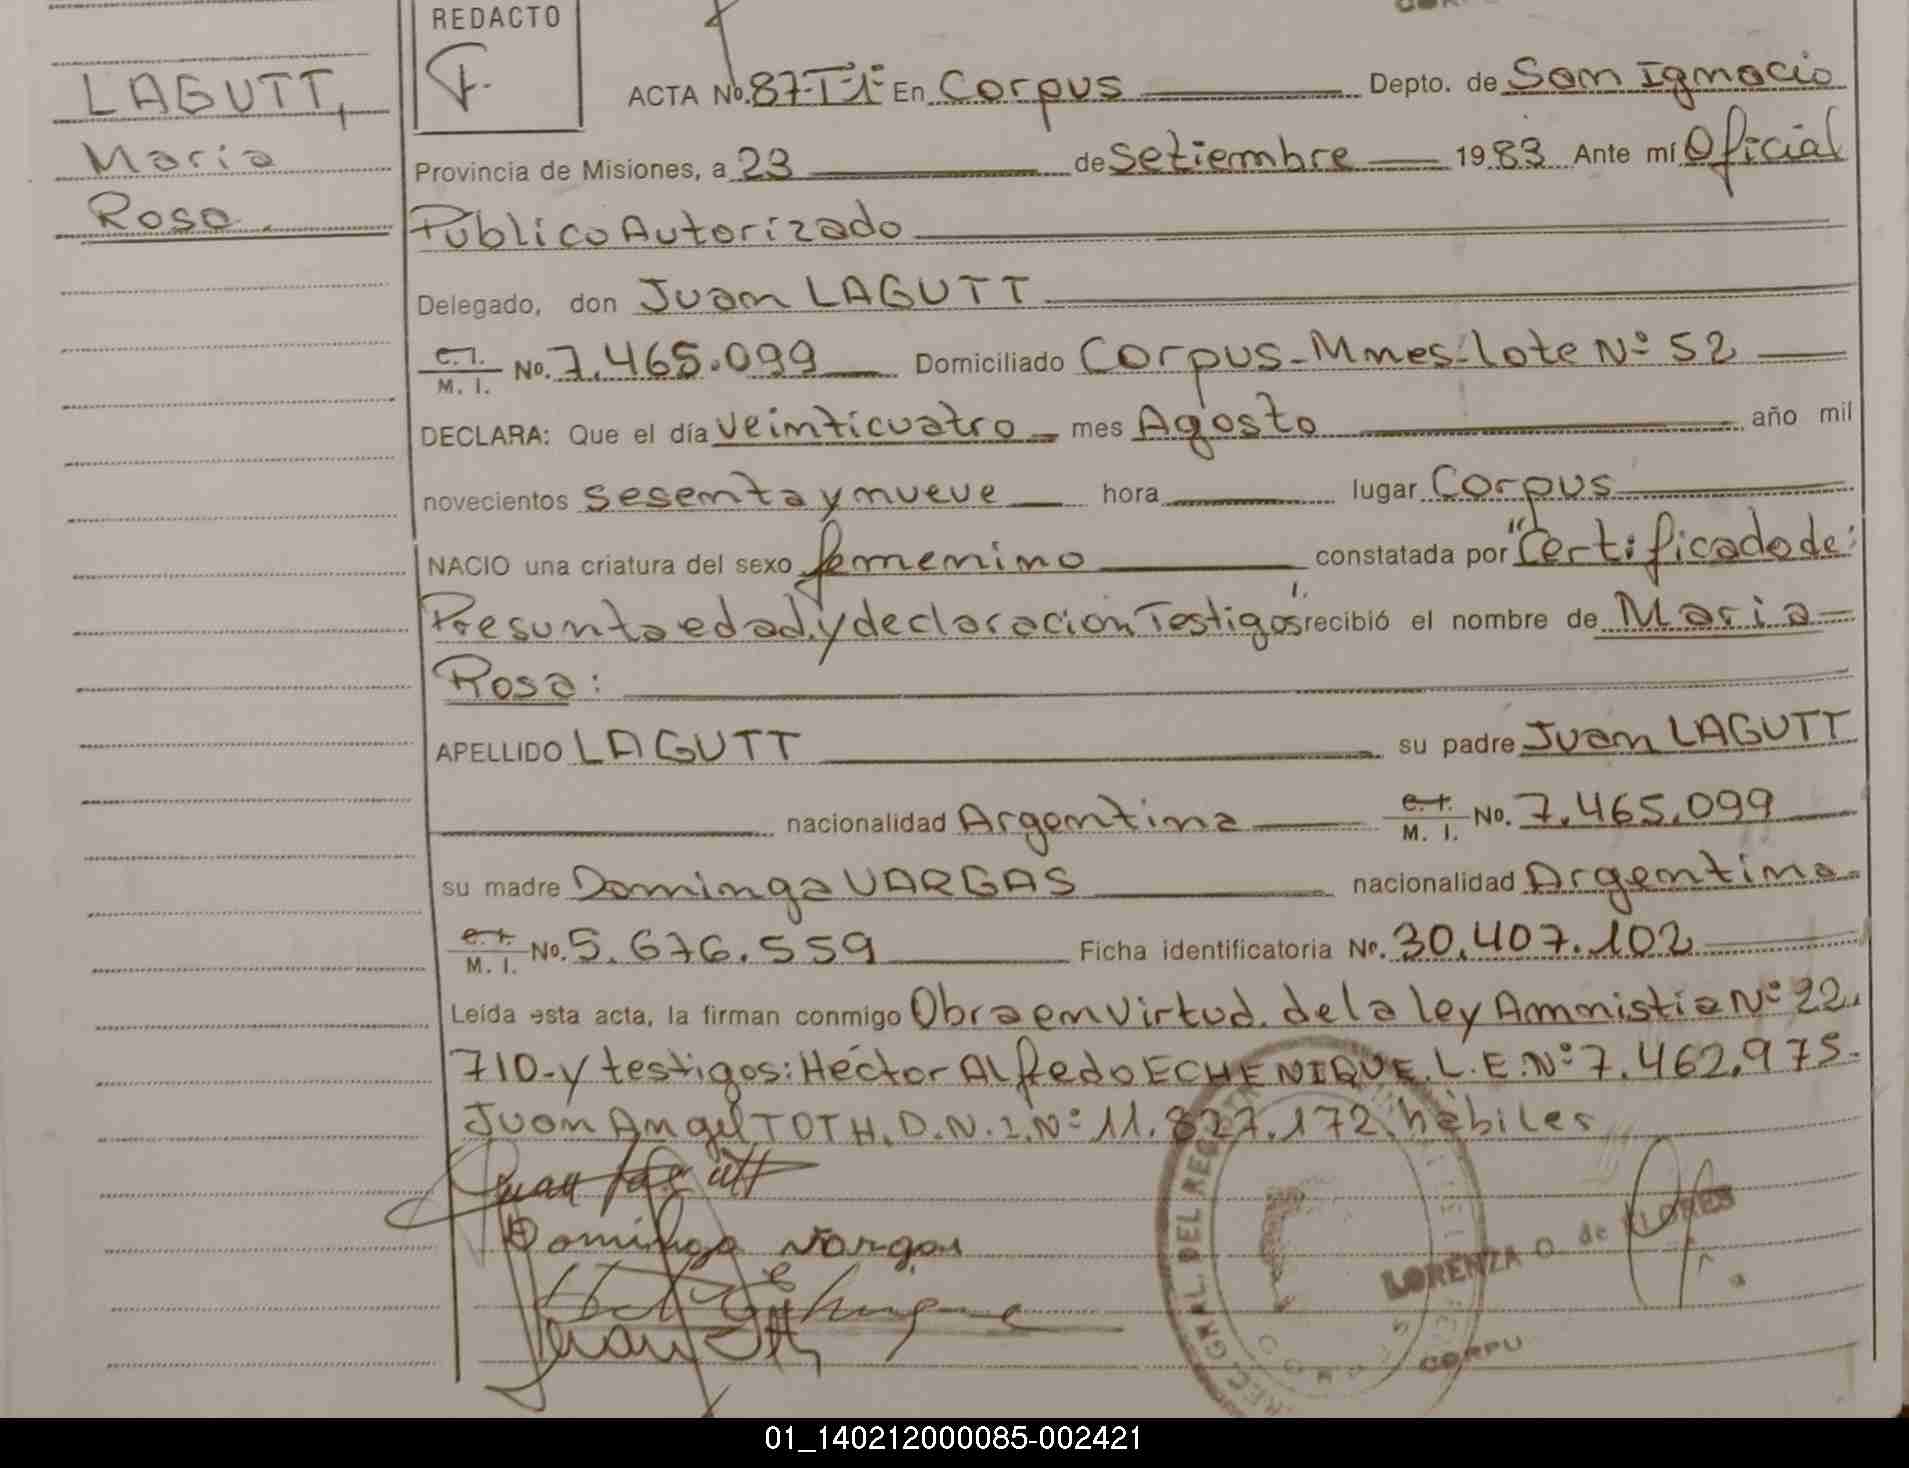 REDACTO
F.
LAGUTT,
Maria
Rosa.
ACTA No. 87-T-1º En Corpus Depto. de San Ignacio
Provincia de Misiones, a 23 de Setiembre 1983 Ante mí Oficial
Público Autorizado
Delegado, don Juan LAGUTT
C.I. M. I. No. 7.465.099 Domiciliado Corpus-Mnes-lote Nº 52
DECLARA: Que el día veinticuatro mes Agosto año mil
novecientos sesenta y nueve hora lugar Corpus
NACIO una criatura del sexo femenino constatada por "Certificado de:
Presunta edad y declaración Testigos" recibió el nombre de Maria
Rosa:
APELLIDO LAGUTT su padre Juan LAGUTT
nacionalidad Argentina C.I. M. I. No. 7.465.099
su madre Dominga VARGAS nacionalidad Argentina
C.I. M. I. No. 5.676.559 Ficha identificatoria No. 30.407.102
Leída esta acta, la firman conmigo Obra en virtud de la ley Amnistia Nº 22.
710-y testigos: Héctor Alfredo ECHENIQUE. L.E. Nº 7.462.975-
Juan Angel TOTH, D.N.I. Nº 11.827.172, hábiles
Juan Lagutt
Dominga Vargas
LORENZA O. de FLORES
GRAL DEL REG
CORPU
01_140212000085-002421